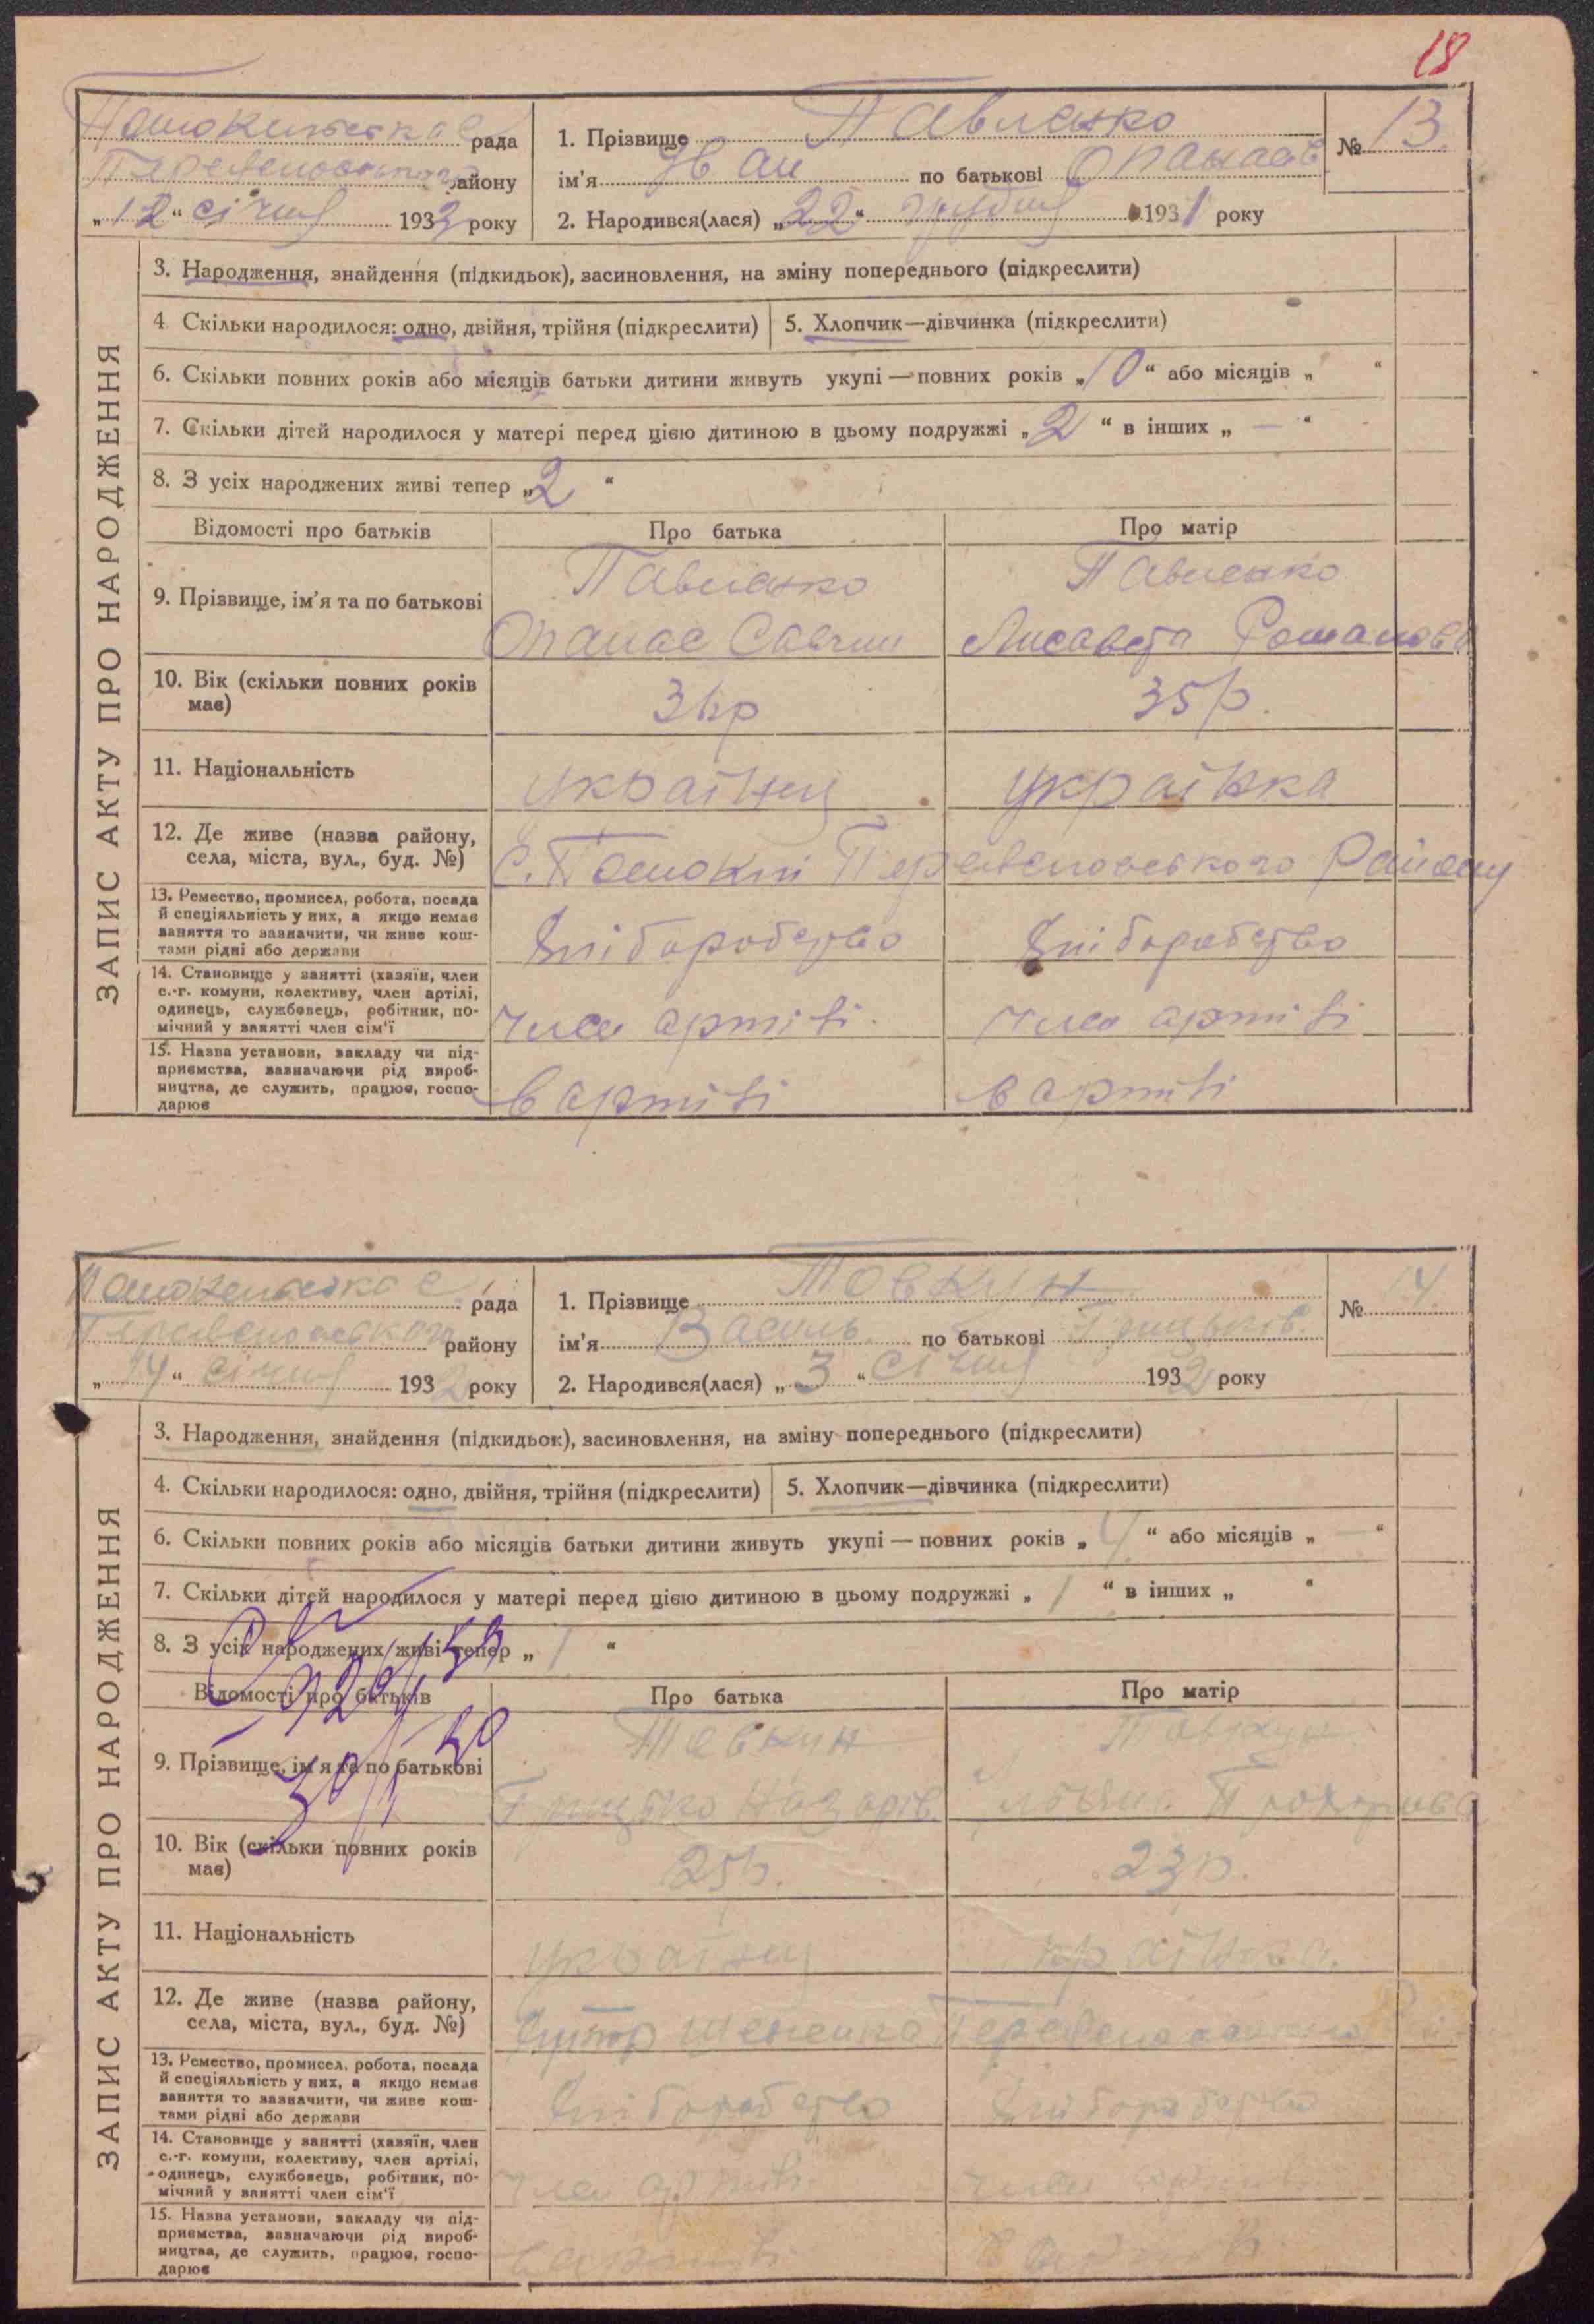 18
рада
1. Прізвище Павленко
№ 13.
району
ім'я Іван по батькові Опанасів
„12“ січня 1932 року
2. Народився(лася) „22“ грудня 1931 року
ЗАПИС АКТУ ПРО НАРОДЖЕННЯ
3. Народження, знайдення (підкидьок), засиновлення, на зміну попереднього (підкреслити)
4. Скільки народилося: одно, двійня, трійня (підкреслити)
5. Хлопчик—дівчинка (підкреслити)
6. Скільки повних років або місяців батьки дитини живуть укупі — повних років „10“ або місяців „ “
7. Скільки дітей народилося у матері перед цією дитиною в цьому подружжі „2“ в інших „—“
8. З усіх народжених живі тепер „2“
Відомості про батьків
Про батька
Про матір
9. Прізвище, ім'я та по батькові
Павленко
Павленко
Опанас
Лисавета Романова
10. Вік (скільки повних років має)
35р.
11. Національність
українец
українка
12. Де живе (назва району, села, міста, вул., буд. №)
с. району
13. Ремество, промисел, робота, посада й спеціяльність у них, а якщо немає заняття то зазначити, чи живе коштами рідні або держави
Хліборобство
Хліборобство
14. Становище у занятті (хазяїн, член с.-г. комуни, колективу, член артілі, одинець, службовець, робітник, помічний у занятті член сім'ї
член артілі.
член артілі
15. Назва установи, закладу чи підприємства, зазначаючи рід виробництва, де служить, працює, господарює
в артілі
в артілі
рада
1. Прізвище Товкун
№ 14.
району
ім'я Василь по батькові Грицьків.
„14“ січня 1932 року
2. Народився(лася) „3“ січня 1932 року
ЗАПИС АКТУ ПРО НАРОДЖЕННЯ
3. Народження, знайдення (підкидьок), засиновлення, на зміну попереднього (підкреслити)
4. Скільки народилося: одно, двійня, трійня (підкреслити)
5. Хлопчик—дівчинка (підкреслити)
6. Скільки повних років або місяців батьки дитини живуть укупі — повних років „4“ або місяців „—“
7. Скільки дітей народилося у матері перед цією дитиною в цьому подружжі „1“ в інших „ “
8. З усіх народжених живі тепер „1“
Відомості про батьків
Про батька
Про матір
9. Прізвище, ім'я та по батькові
Товкун
Товкун
Грицько Назарів.
Уляна Прохорова
10. Вік (скільки повних років має)
25р.
23р.
11. Національність
українец
українка.
12. Де живе (назва району, села, міста, вул., буд. №)
Хутор
13. Ремество, промисел, робота, посада й спеціяльність у них, а якщо немає заняття то зазначити, чи живе коштами рідні або держави
Хліборобство
Хліборобство
14. Становище у занятті (хазяїн, член с.-г. комуни, колективу, член артілі, одинець, службовець, робітник, помічний у занятті член сім'ї
член артілі
член артілі
15. Назва установи, закладу чи підприємства, зазначаючи рід виробництва, де служить, працює, господарює